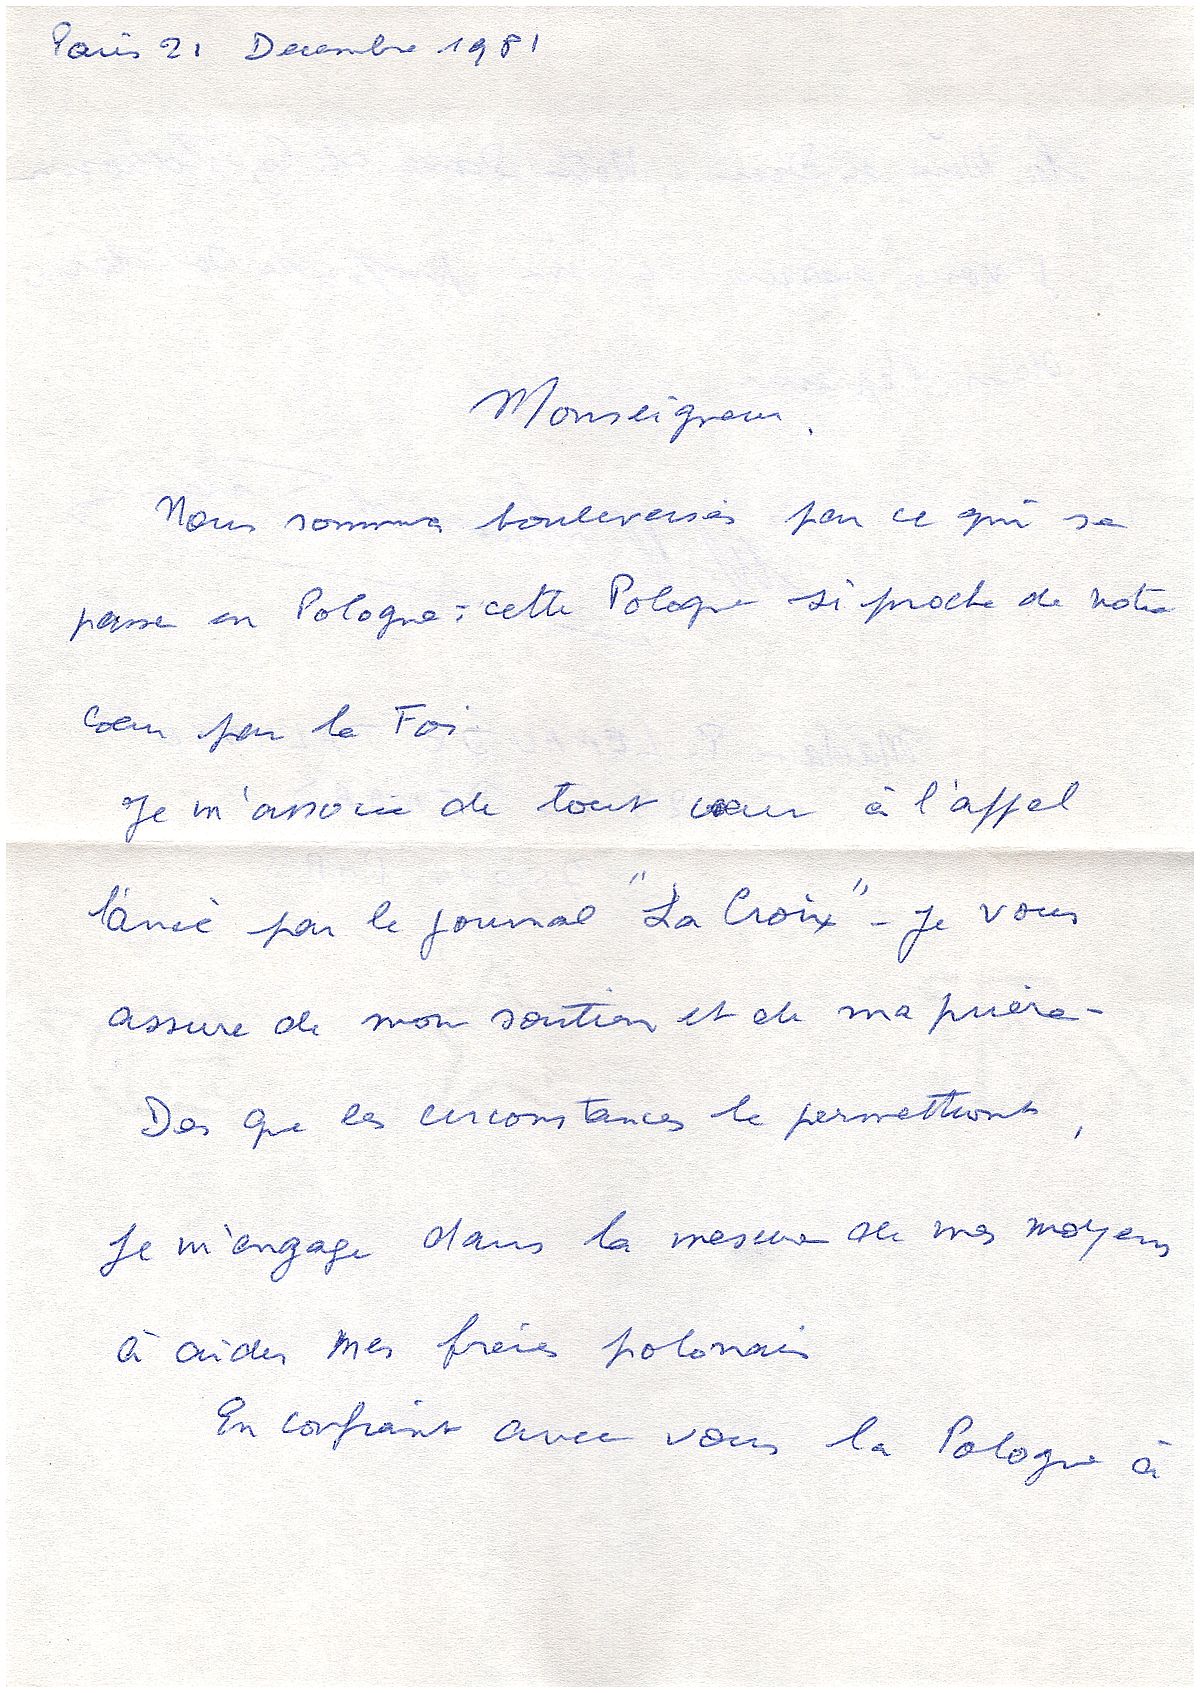 Paris 21 Decembre 1981
Monseigneur.
Nous sommes bouleversés par ce qui se
passe en Pologne : cette Pologne si proche de notre
cœur par la Foi
Je m'associe de tout cœur à l'appel
lancé par le journal "La Croix" - Je vous
assure de mon soutien et de ma prière -
Des que les circonstances le permettront,
Je m'engage dans la mesure de mes moyens
à aider mes frères polonais
En confiant avec vous la Pologne à